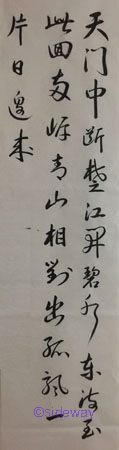 天门中断楚江開碧水东流至
此回两岸青山相對出孤帆一
片日邊来
©sideway